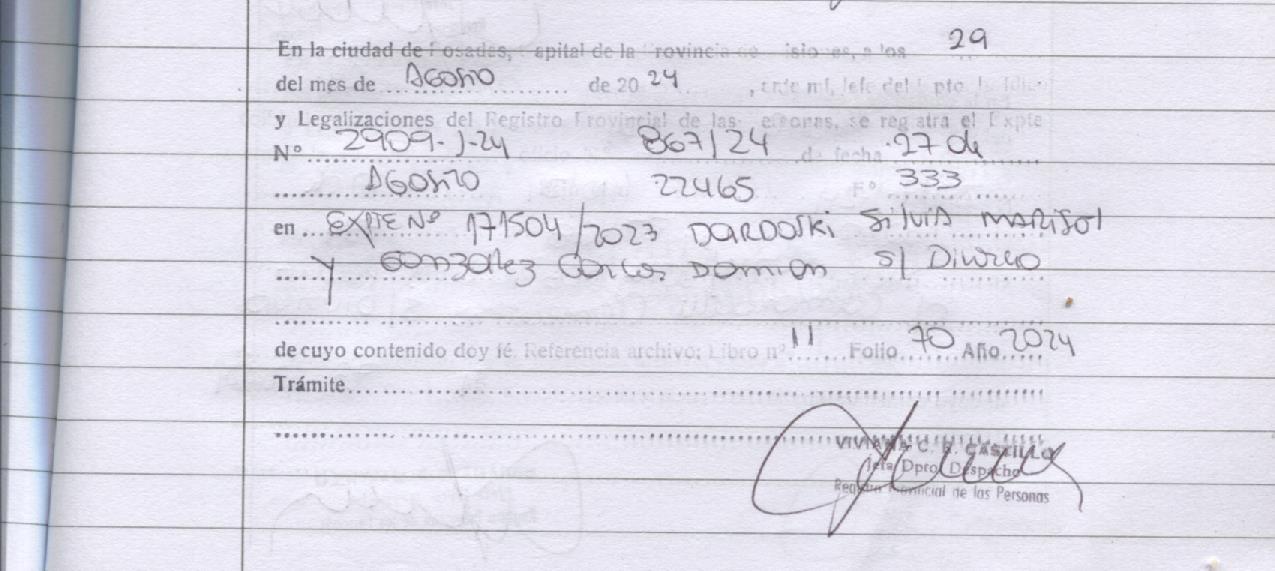 En la ciudad de Posadas, Capital de la Provincia de Misiones, a los 29
del mes de AGOSTO de 2024, ante mí, Jefe del Dpto. Jurídico
y Legalizaciones del Registro Provincial de las Personas, se registra el Expte
N° 2909-J-24 867/24 de fecha 27 de
AGOSTO 22465 F° 333
en EXPTE Nº 171504/2023 DARDOSKI SILVIA MARISOL
Y GONZALEZ CARLOS DAMIAN S/ DIVORCIO
de cuyo contenido doy fé. Referencia archivo: Libro nº 11 Folio 70 Año 2024
Trámite
VIVIANA C. R. CASTILLO
Jefa Dpto. Despacho
Registro Provincial de las Personas